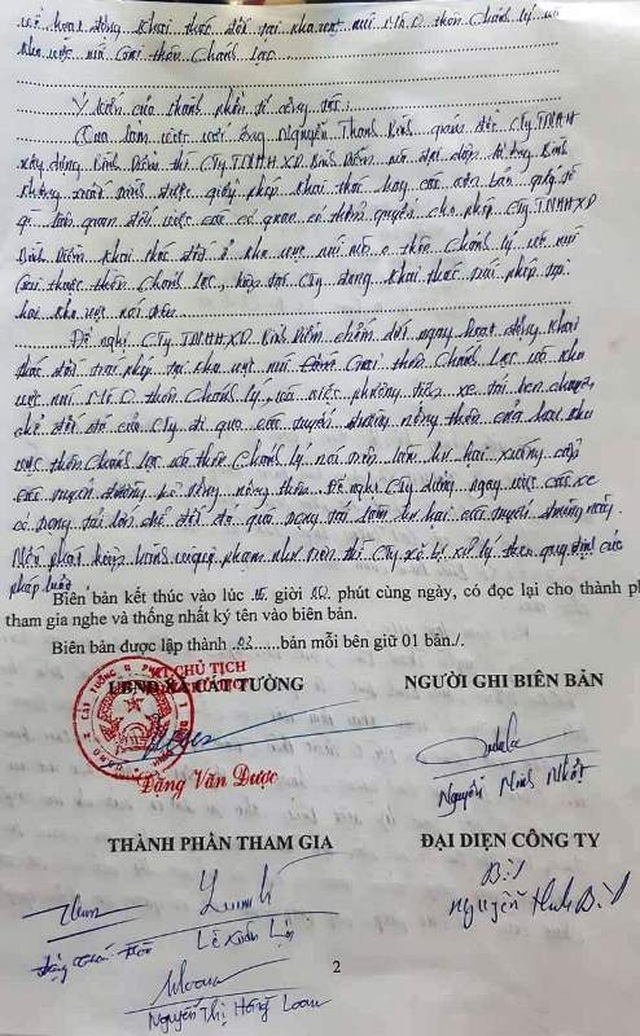 về hoạt động khai thác đất tại khu vực núi thôn Chánh lý và
khu vực núi Gai thôn Chánh Lạc
Ý kiến của thành phần tổ công tác:
Qua làm việc với ông Nguyễn Thanh Bình giám đốc CTy TNHH
xây dựng Bình Diễm thì CTy TNHH XD Bình Diễm mà đại diện là ông Bình
không xuất trình được giấy phép khai thác hay các văn bản giấy tờ
gì liên quan đến việc các cơ quan có thẩm quyền cho phép CTy TNHHXD
Bình Diễm khai thác đất ở khu vực núi thôn Chánh lý và núi
Gai thuộc thôn Chánh Lạc, hiện tại CTy đang khai thác trái phép tại
hai khu vực nói trên.
Đề nghị CTy TNHHXD Bình Diễm chấm dứt ngay hoạt động khai
thác đất trái phép tại khu vực núi Gai thôn Chánh Lạc và khu
vực núi thôn Chánh lý, và việc phương tiện xe tải ben chuyên
chở đất đá của CTy đi qua các tuyến đường nông thôn của hai khu
vực thôn Chánh Lạc và thôn Chánh lý nói trên làm hư hại xuống cấp
các tuyến đường bê tông nông thôn. Đề nghị CTy dừng ngay việc các xe
có trọng tải lớn chở đất đá quá trọng tải làm hư hại các tuyến đường này.
Nếu phát hiện hành vi vi phạm như trên thì CTy sẽ bị xử lý theo quy định của
pháp luật
Biên bản kết thúc vào lúc giờ phút cùng ngày, có đọc lại cho thành ph
tham gia nghe và thống nhất ký tên vào biên bản.
Biên bản được lập thành .02......bản mỗi bên giữ 01 bản./.
KT. CHỦ TỊCH
UBND XÃ CÁT TƯỜNG NGƯỜI GHI BIÊN BẢN
Đặng Văn Dược
Nguyễn Minh Nhất
THÀNH PHẦN THAM GIA ĐẠI DIỆN CÔNG TY
Nguyễn Thanh Bình
Lê Xuân
2
Nguyễn Thị Hồng Loan